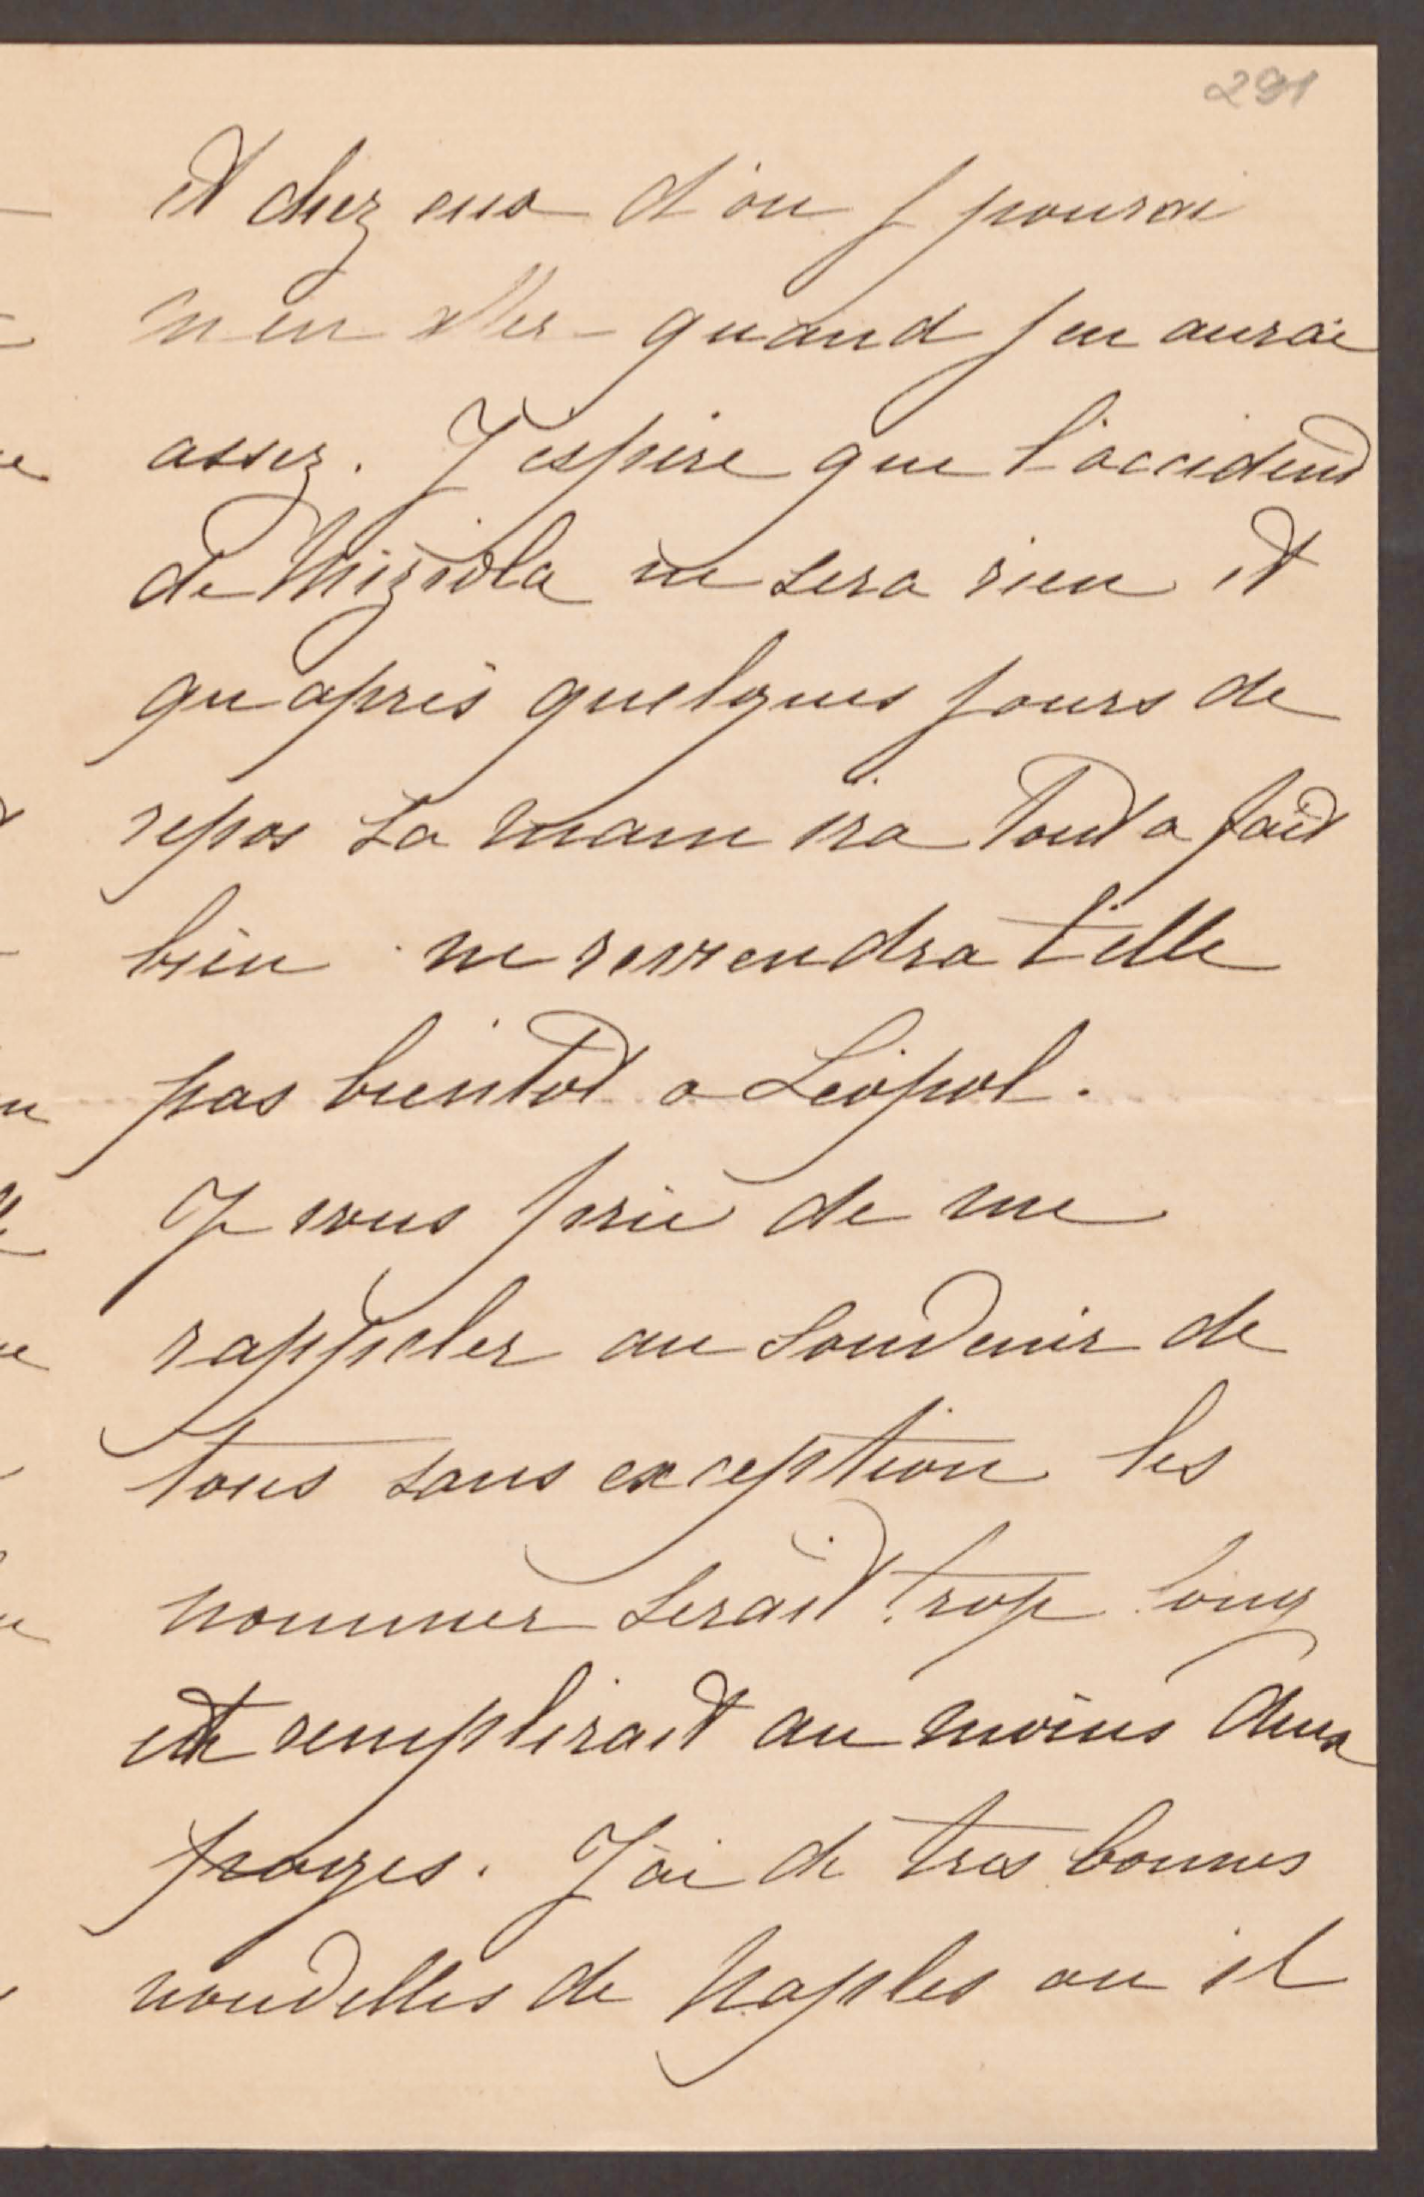 291
et chez eux d'ou j pourai
m'en aller - quand j'en aurai
assez. J'espère que l'accident
de Miziola ne sera rien et
qu'après quelques jours de
repos sa main ira tout a fait
bien ne reviendra t'elle
pas bientot a Léopol.
Je vous prie de me
rappeler au souvenir de
tous sans exception les
nommer serait trop long
et remplirait au moins deux
pages. J'ai de tres bonnes
nouvelles de Naples ou il